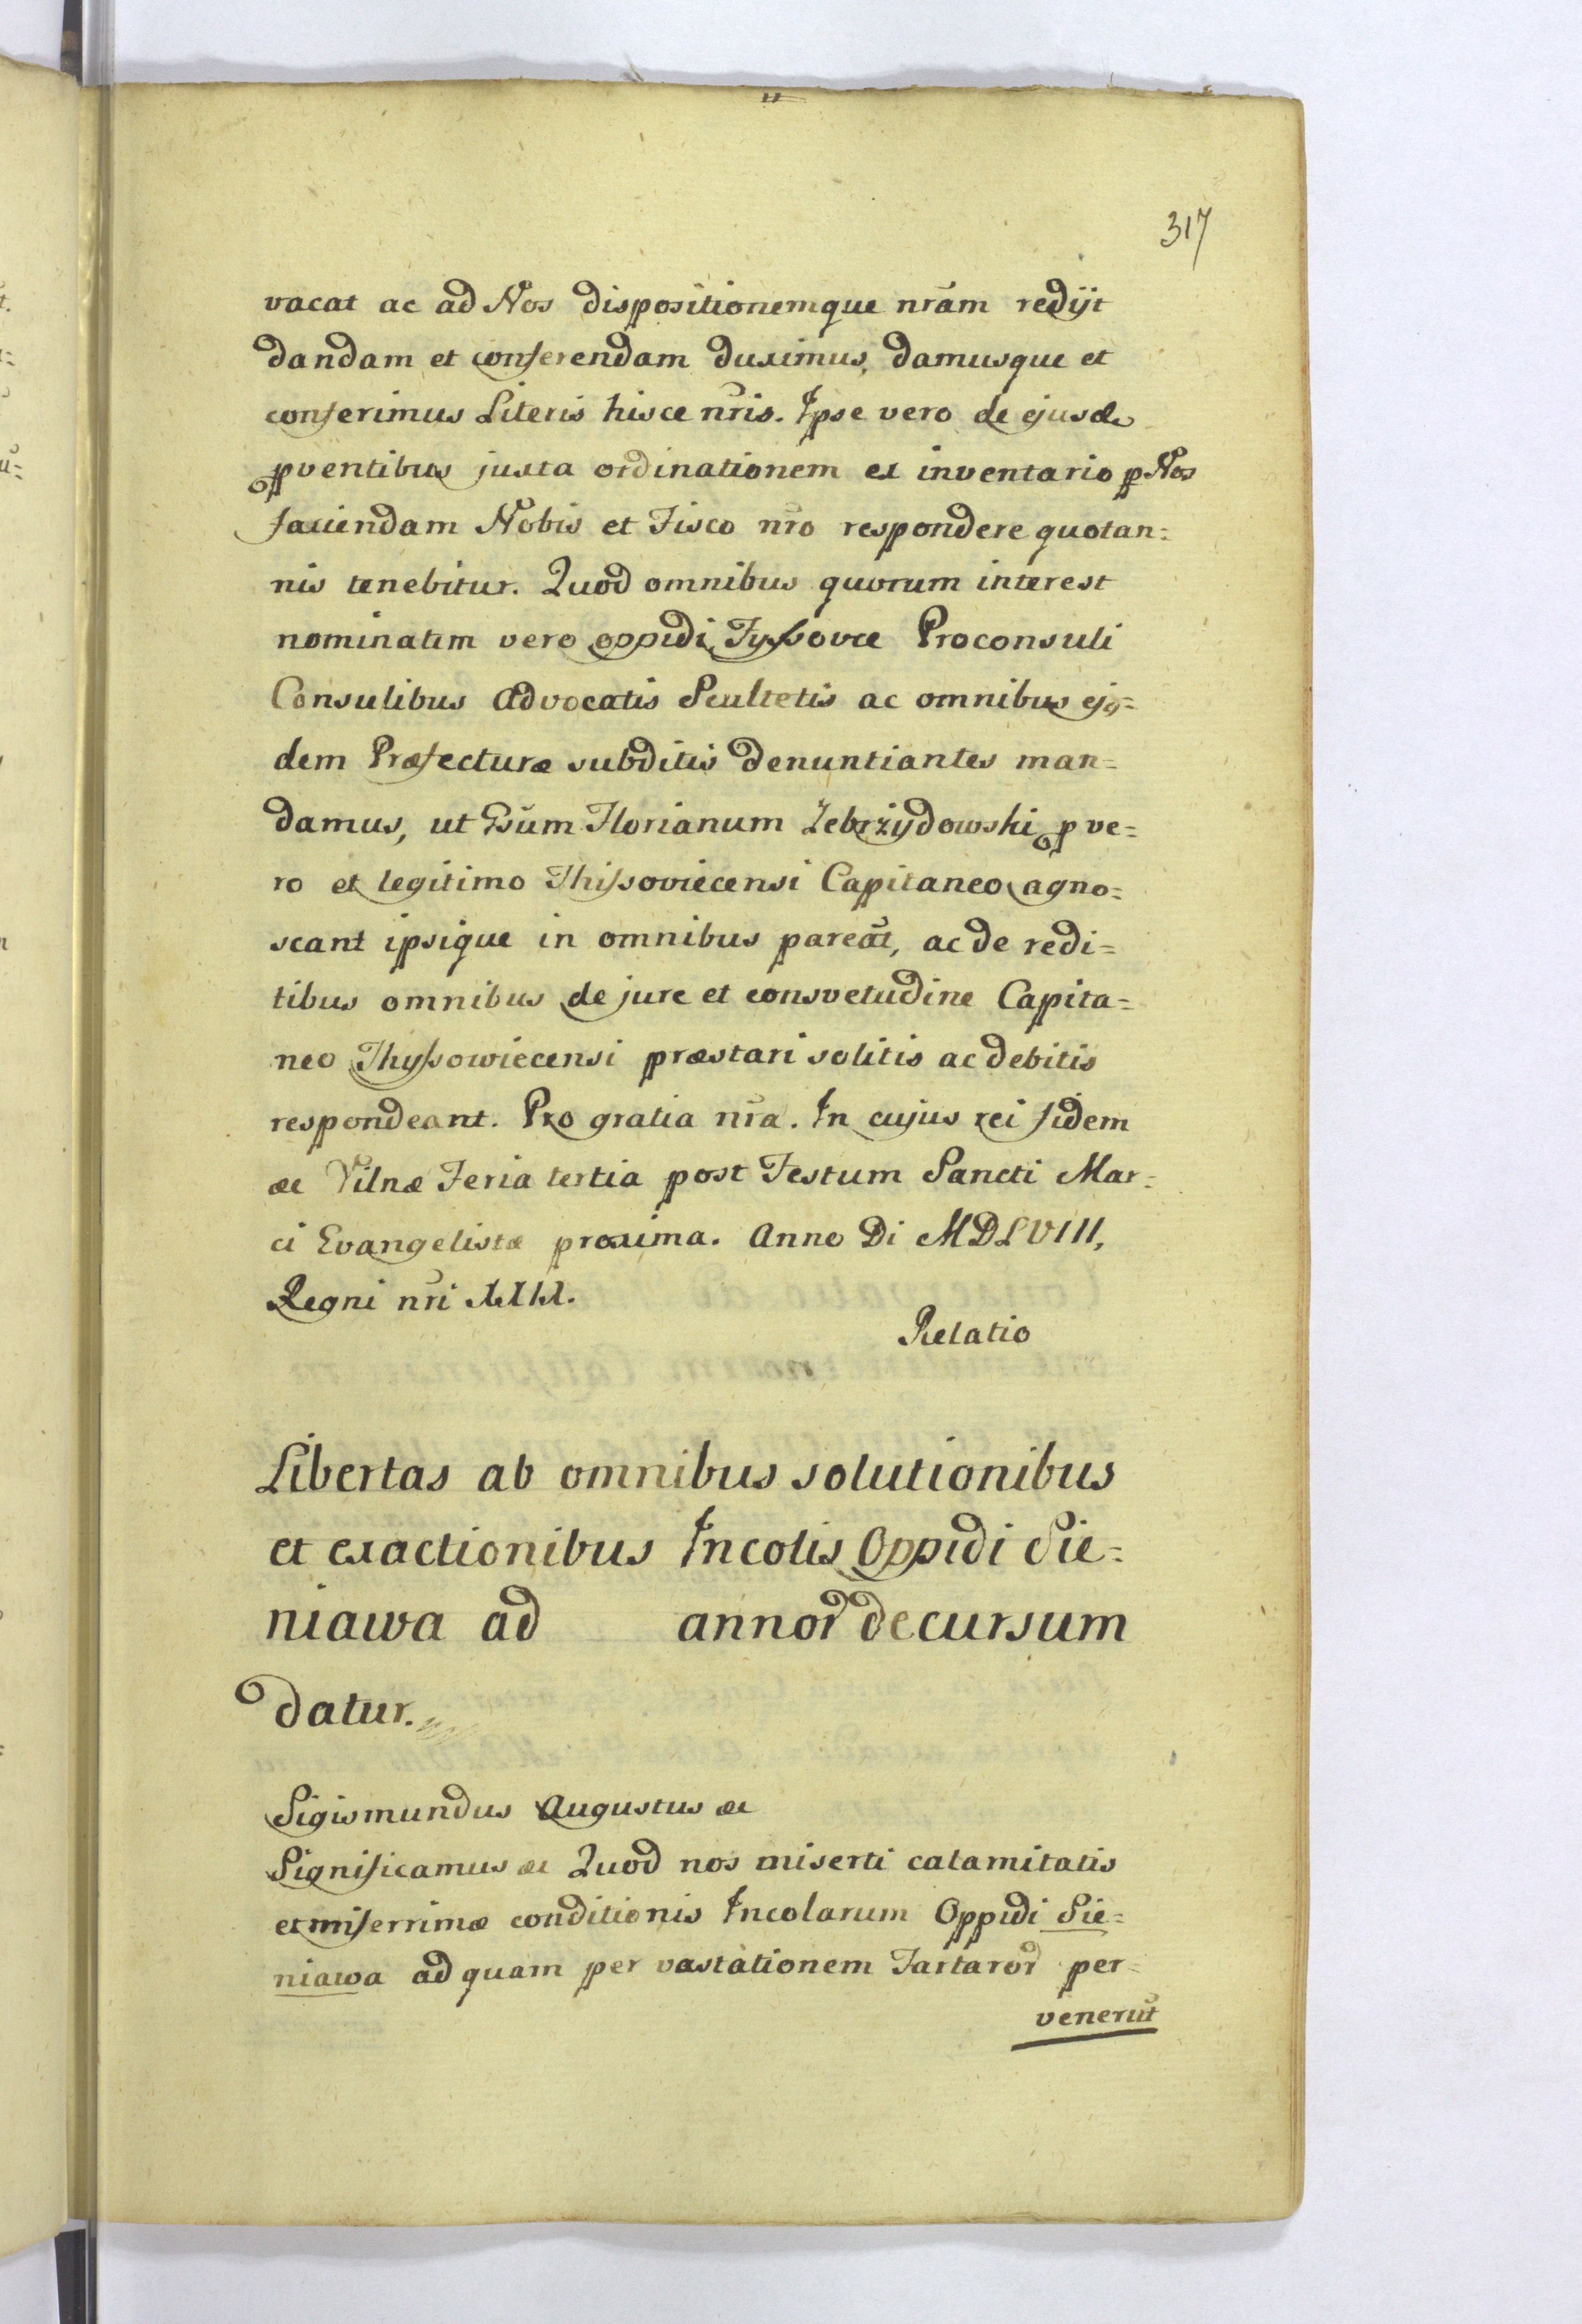 317
vacat ac ad Nos dispositionemque nr̃am redijt
dandam et conferendam duximus, damusque et
conferimus Literis hisce nr̃is. Ipse vero de ejusdẽ
pventibus juxta ordinationem ex inventario p Nos
faciendam Nobis et Fisco nr̃o respondere quotan=
nis tenebitur. Quod omnibus quorum interest
nominatim vero oppidi Tyssovce Proconsuli
Consulibus Advocatis Scultetis ac omnibus ejq=
dem Præfecturæ subditis denuntiantes man=
damus, ut Gsũm Florianum Zebrzydowski p ve=
ro et legitimo Thissoviecensi Capitaneo agno=
scant ipsique in omnibus pareãt, ac de redi=
tibus omnibus de jure et consvetudine Capita=
neo Thyssowiecensi præstari solitis ac debitis
respondeant. Pro gratia nr̃a. In cujus rei fidem
&c Vilnæ Feria tertia post Festum Sancti Mar=
ci Evangelistæ proxima. Anno Di MDLVIII,
Regni nr̃i
Relatio
Libertas ab omnibus solutionibus
et exactionibus Incolis Oppidi Sie=
niawa ad annor decursum
datur.
Sigismundus Augustus &c
Significamus &c Quod nos miserti calamitatis
et miserrimæ conditionis Incolarum Oppidi Sie=
niawa ad quam per vastationem Tartaror per=
venerũt